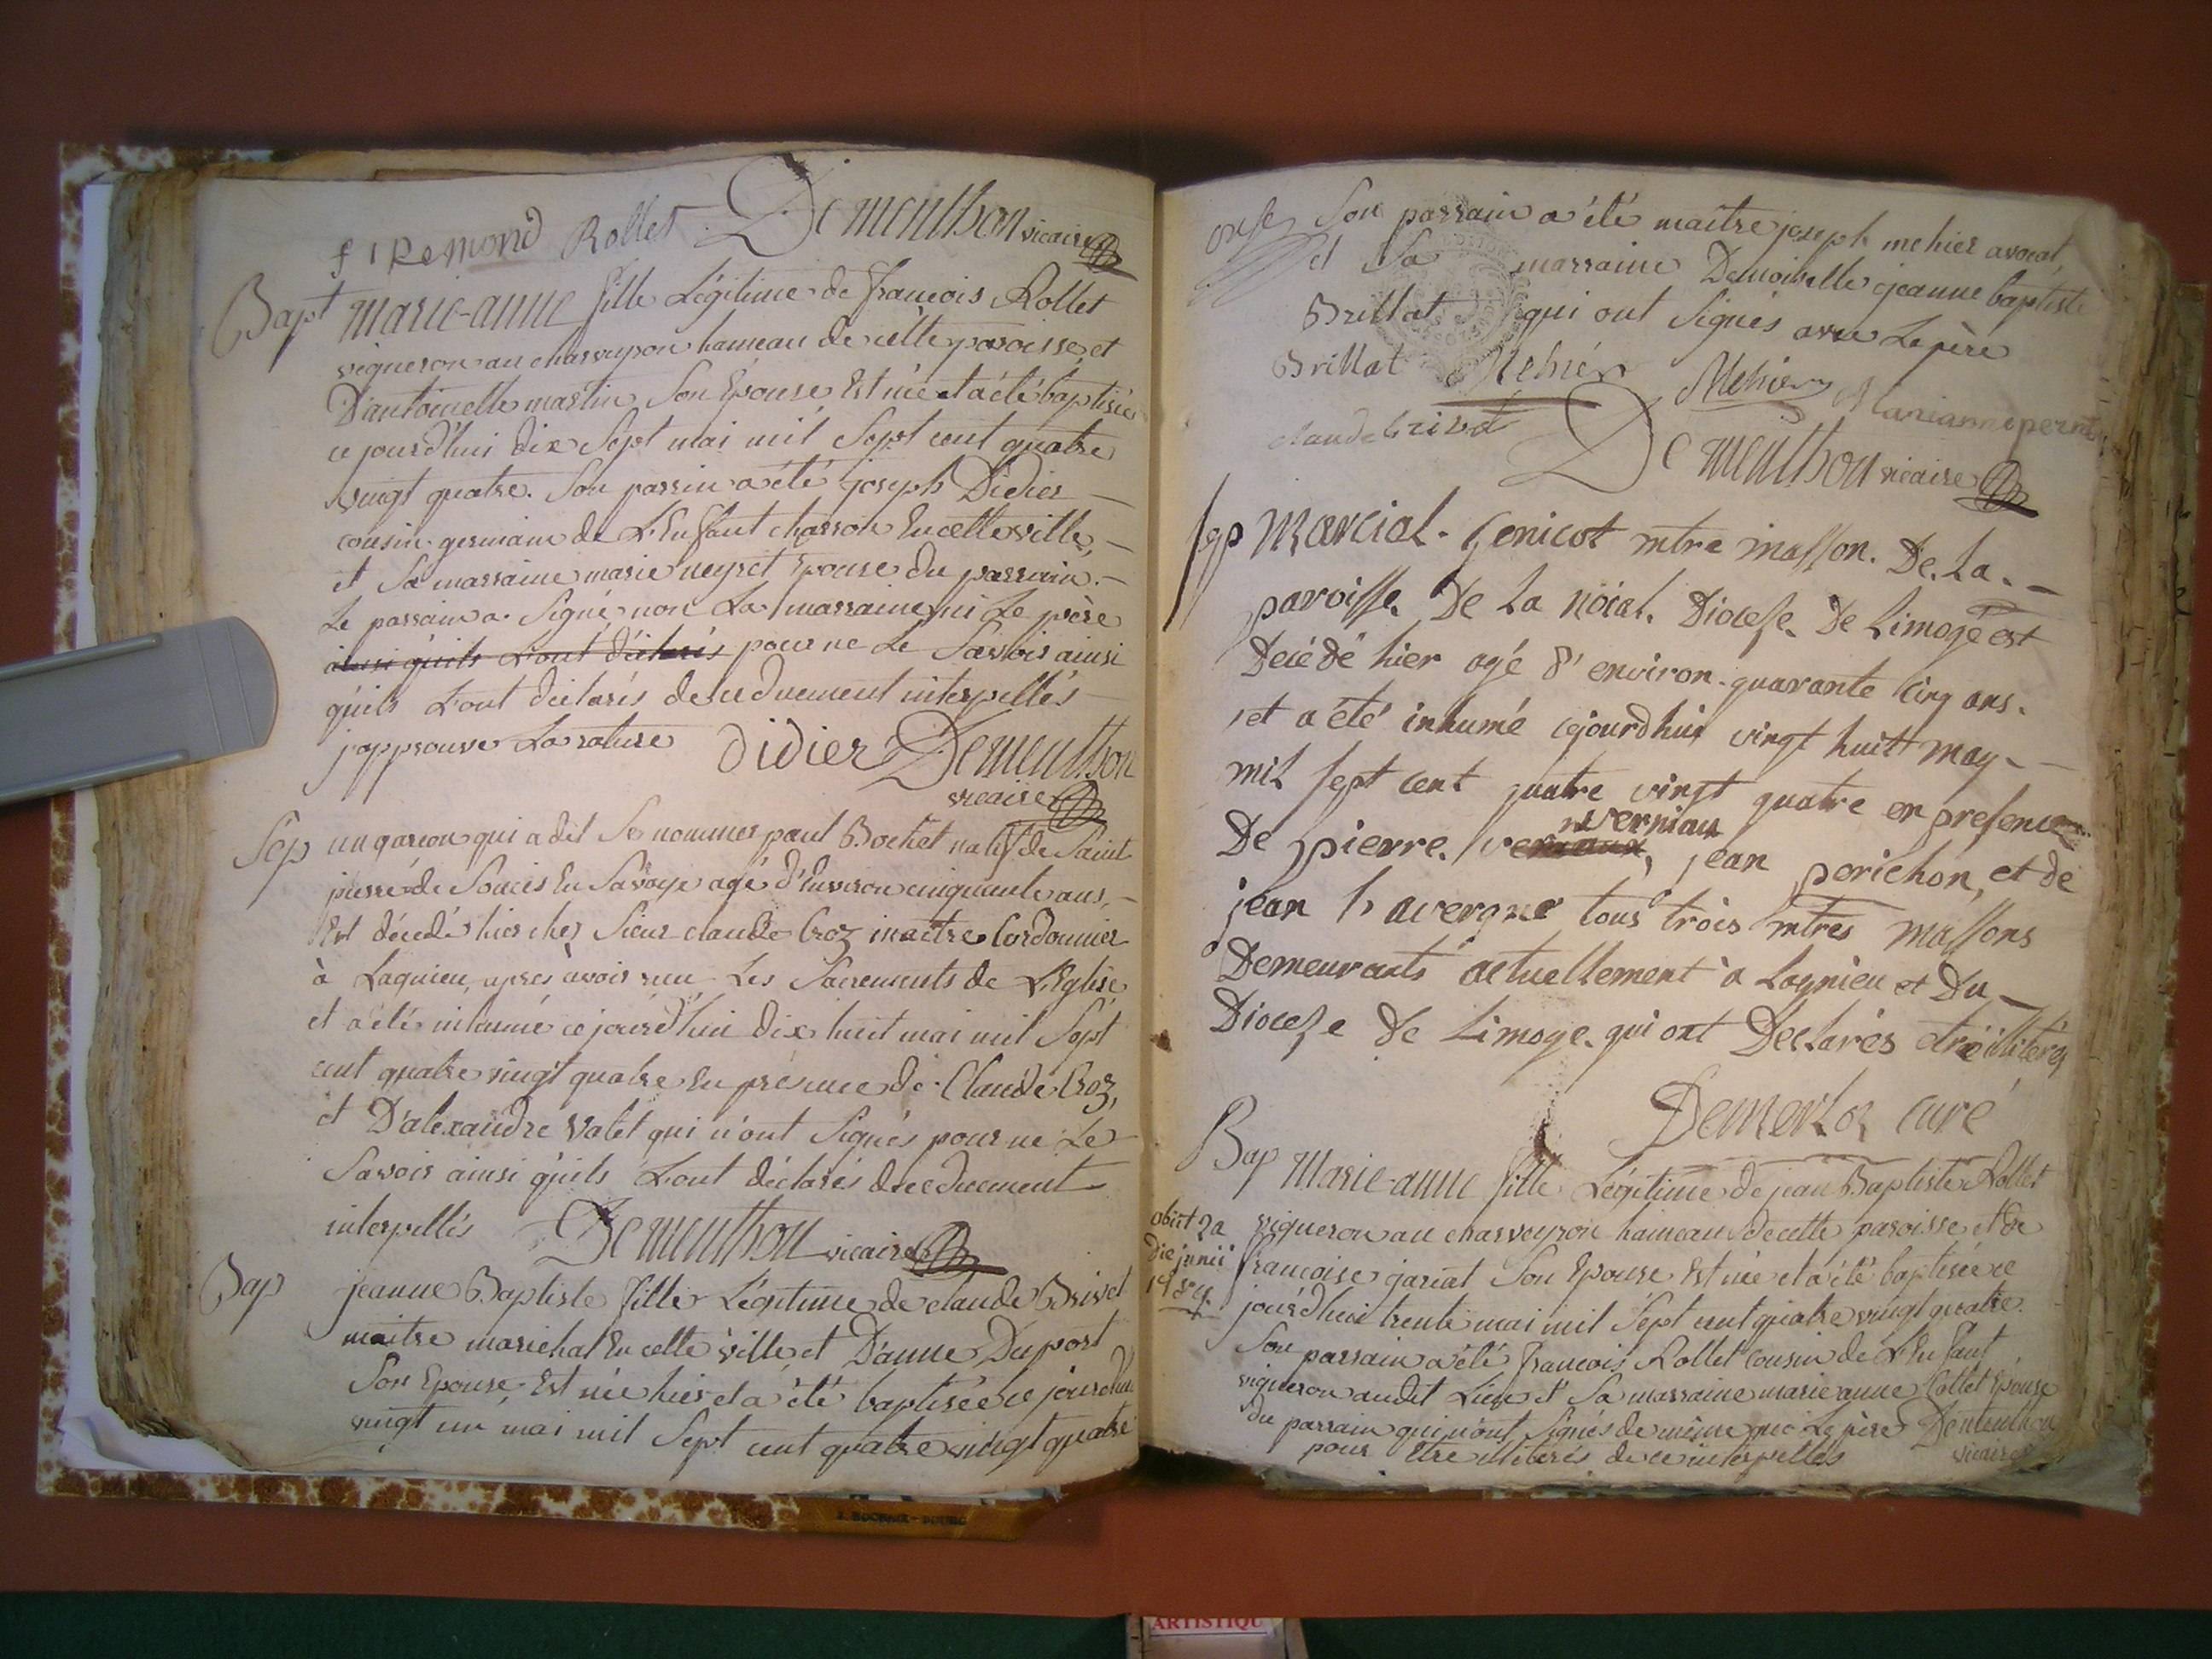 f i Remond Rollet Dementhon vicaire
Bapt marie-anne fille Légitime de francois Rollet
vigneron au charveyron hameau de cette paroisse et
D'antoinette martin Son Epouse Est née et a été baptisée
ce jourd'hui dix Sept mai mil Sept cent quatre
vingt quatre. Son parrin a été joseph Didier
cousin germain de L'Enfant charron En cette ville,
et Sa marraine marie neyret Epouse du parrain.
Le parrain a Signé non La marraine ni Le père
ainsi qu'ils L'ont déclarés pour ne Le Savoir ainsi
qu'ils L'ont déclarés de ce duement interpellés
j'approuve La rature Didier Dementhon
vicaire
Sep un garcon qui a dit Se nommer paul Bochet natif de Saint
pierre de Soucis En Savoye agé d'Environ cinquante ans,
Est décédé hier chez Sieur claude Croz maitre Cordonnier
à Lagnieu, apres avoir reçu Les Sacrements de L'Eglise
et a été inhumé ce jourd'hui dix huit mai mil Sept
cent quatre vingt quatre En présence de Claude Croz,
et D'alexandre Valet qui n'ont Signés pour ne Le
Savoir ainsi qu'ils L'ont déclarés de ce duement
interpellés Dementhon vicaire
Bap jeanne Baptiste fille Légitime de claude Brivet
maitre marichal En cette ville et D'anne Duport
Son Epouse, Est née hier et a été baptisée ce jourd'hui
vingt un mai mil Sept cent quatre vingt quatre
onse Son parrain a été maitre joseph mehier avocat,
et Sa marraine Demoiselle jeanne baptiste
Brillat qui ont Signés avec Le père
Brillat Mehier Mehier Marianne pernet
claude brivet Dementhon vicaire
sep Marcial Genicot mtre masson. De La
paroisse De La noial. Diocese De Limoge est
Decedé hier agé d'environ quarante cinq ans.
et a été inhumé cejourdhui vingt huit may
mil sept cent quatre vingt quatre en presence
verniau
De pierre, jean perichon, et de
jean Lavergne tous trois mtres massons
Demeurants actuellement à Lagnieu et Du
Diocese De Limoge qui ont Declarés etre illiterés
Demerloz curé
Bap Marie-anne fille Légitime de jean Baptiste Rollet
obiit 2a vigneron au charveyron hameau de cette paroisse et de
die junii francoise gariat Son Epouse Est née et a été baptisée ce
1784 jourd'hui trente mai mil Sept cent quatre vingt quatre.
Son parrain a été francois Rollet cousin de L'Enfant
vigneron audit Lieu et Sa marraine marie anne Collet Epouse
du parrain qui n'ont Signés de même que Le père Dementhon
pour Etre illiterés de ce interpellés vicaire
J. ROCHAIX-BOURG
ARTISTIQU